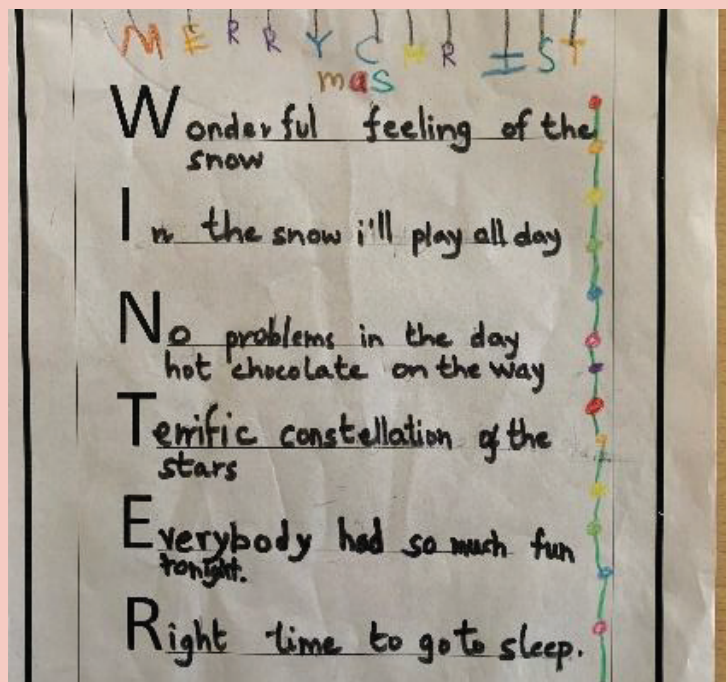 MERRY CHRIST
mas
Wonderful feeling of the
snow
In the snow i'll play all day
No problems in the day
hot chocolate on the way
Terrific constellation of the
stars
Everybody had so much fun
tonight.
Right time to go to sleep.